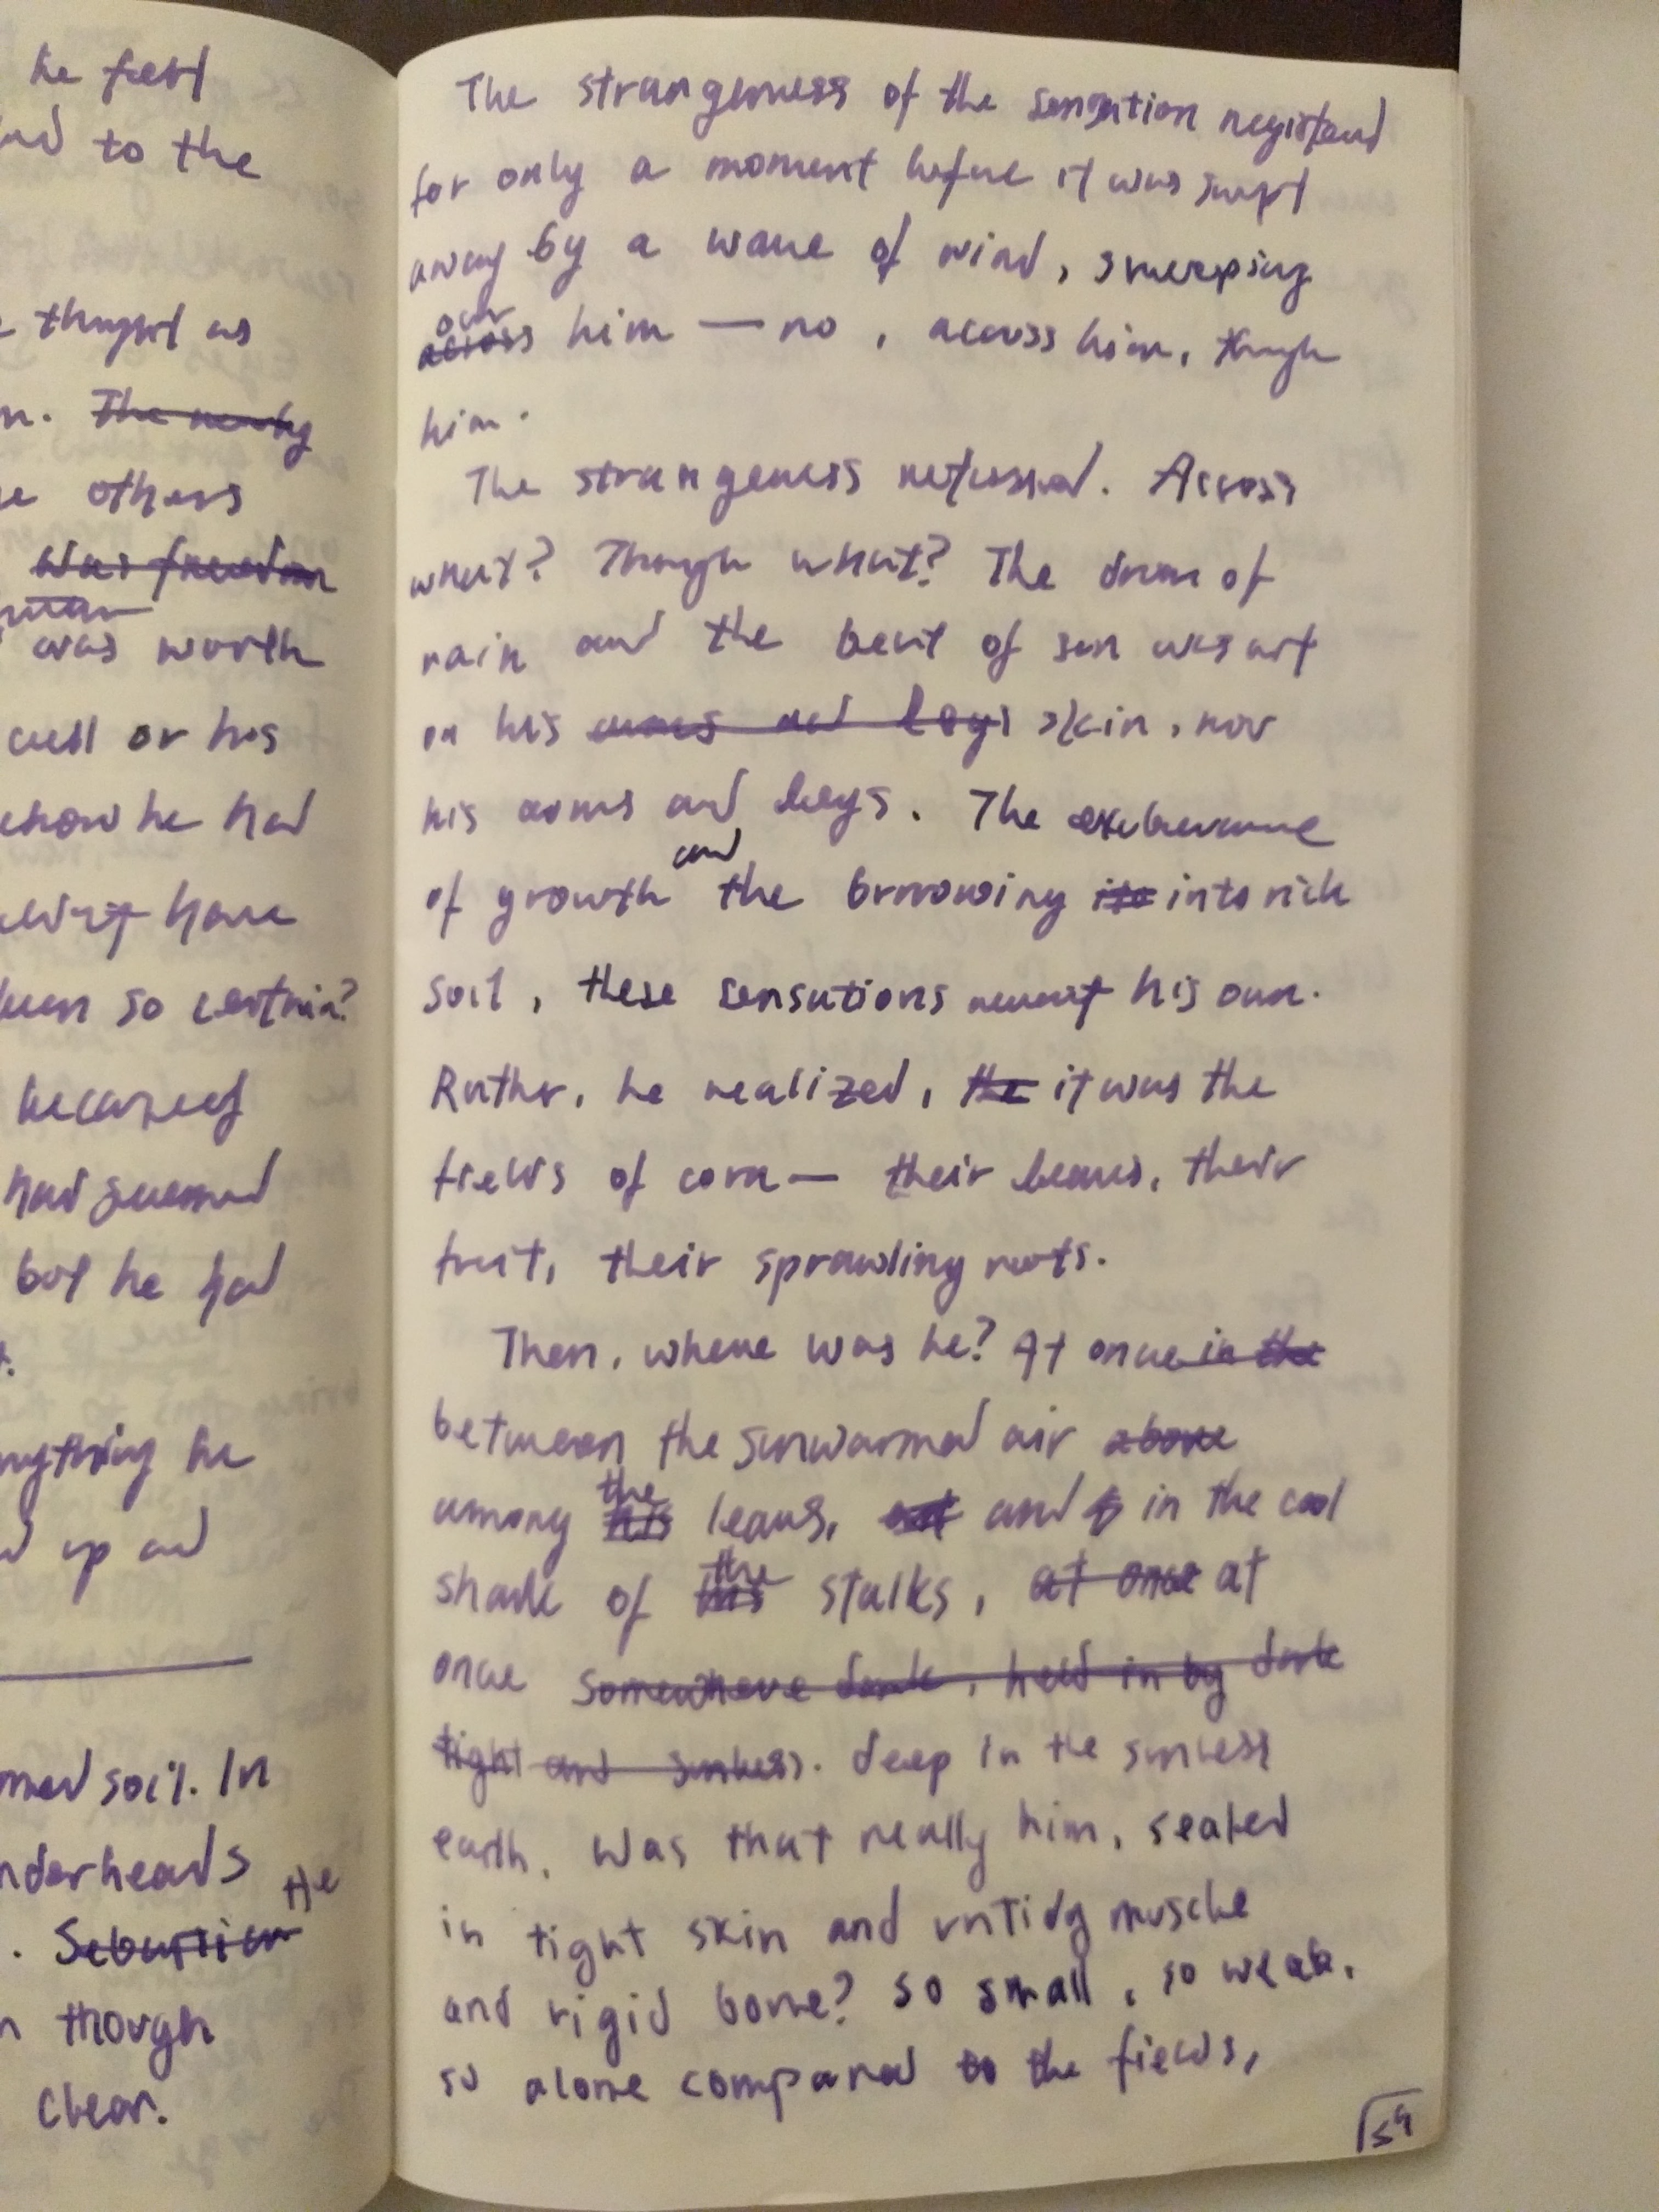 he feet
to the
thought as
The nearby
others
was freedom
was worth
cell or his
he had
have
so certain?
because of
had seemed
but he had
he
up and
soil. In
the
. Sebastian
though
clear.
The strangeness of the sensation registered
for only a moment before it was swept
away by a wave of wind, sweeping
over
across him — no, across him, through
him.
The strangeness returned. Across
what? Through what? The drum of
rain and the beat of sun was not
on his arms and legs skin, nor
his arms and legs. The exuberance
and
of growth the burrowing into rich
soil, these sensations weren't his own.
Rather, he realized, the it was the
fields of corn — their leaves, their
fruit, their sprawling roots.
Then, where was he? At once in the
between the sunwarmed air above
the
among his leaves, and in the cool
the
shade of his stalks, at once at
once somewhere dark, held in by dark
tight and sunless. deep in the sunless
earth. Was that really him, sealed
in tight skin and untidy muscle
and rigid bone? So small, so weak,
so alone compared to the fields,
59